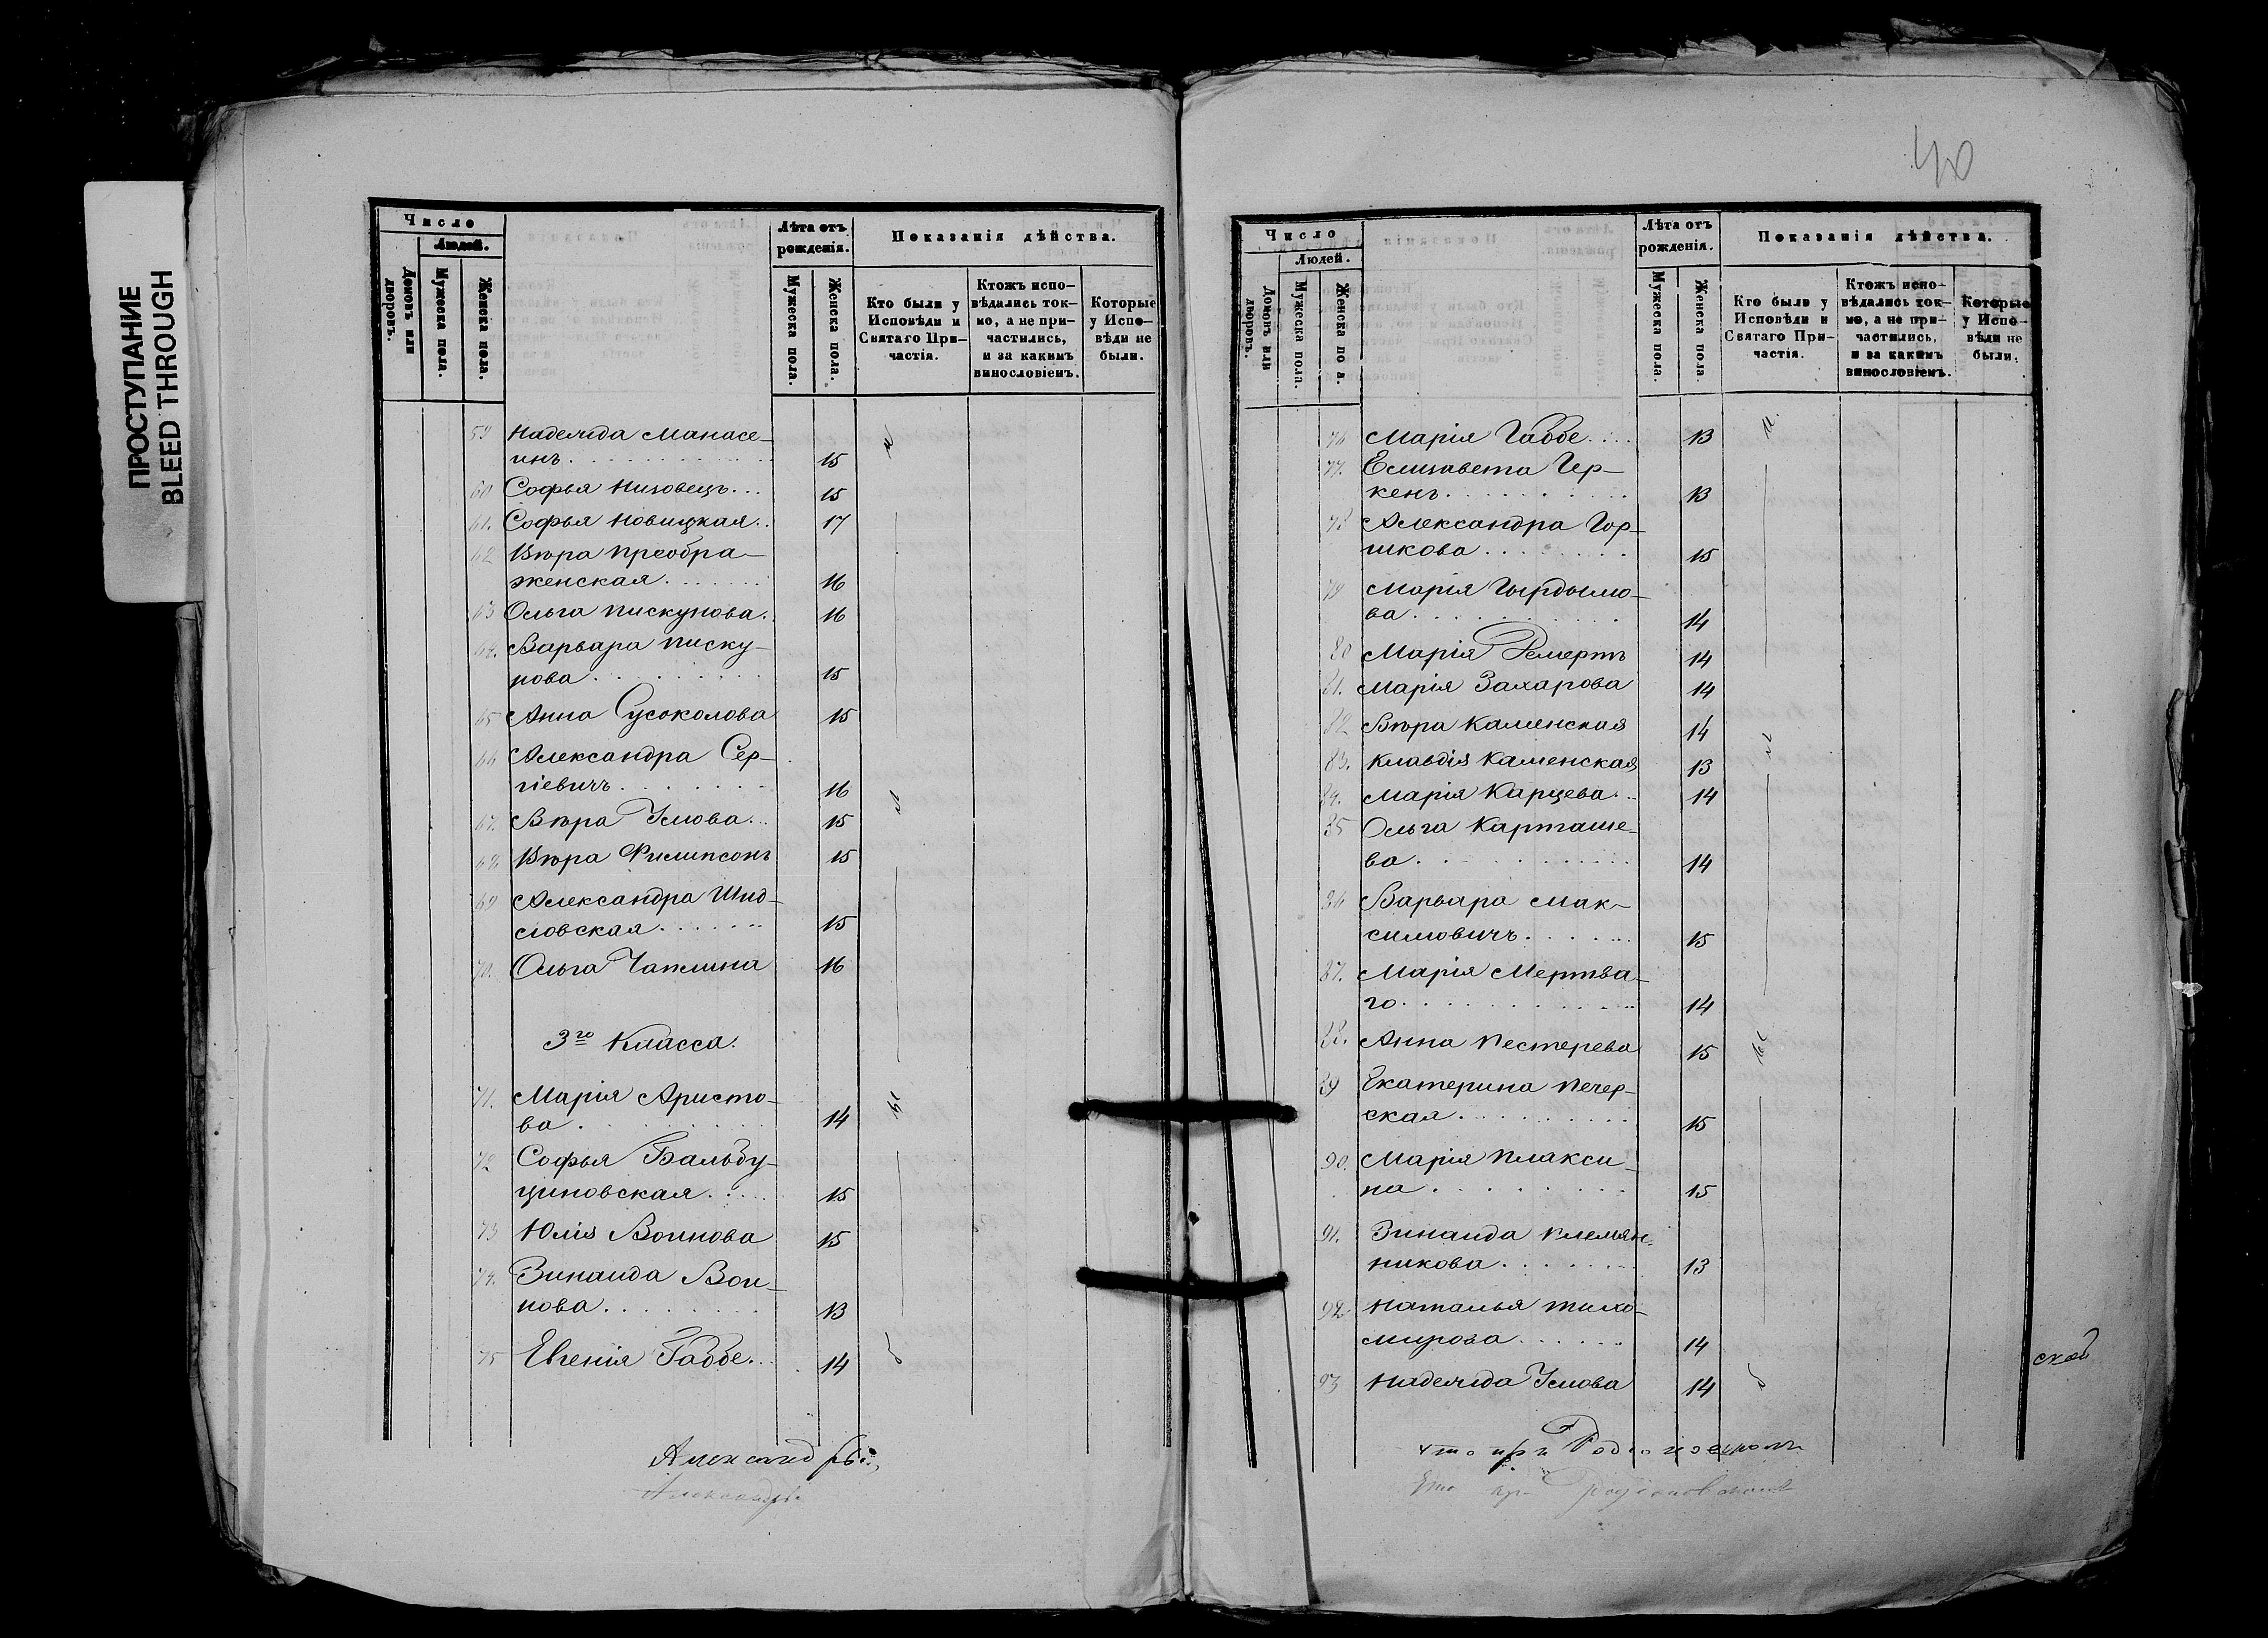 ПРОСТУПАНИЕ
BLEED THROUGH
Число
Людей.
Домовъ или дворовъ.
Мужеска пола.
Женска пола.
Лѣта отъ рожденія.
Мужеска пола.
Женска пола.
Показанія дѣйства.
Кто были у Исповѣди и Святаго Причастія.
Ктожъ исповѣдались токмо, а не причастились, и за какимъ винословіемъ.
Которые у Исповѣди не были.
59 Надежда Манасе-
инъ 15
60 Софья Низовецъ 15
61. Софья Новицкая 17
62 Вѣра Преобра-
женская 16
63 Ольга Пискунова 16
64. Варвара Писку-
нова 15
65 Анна Сусоколова 15
66 Александра Сер-
гіевичъ 16
67. Вѣра Усова 15
68 Вѣра Филипсонъ 15
69 Александра Шид-
ловская 15
70. Ольга Чаплина 16
3го Класса.
71. Марія Аристо-
ва 14
72 Софья Бальбу-
циновская 15
73 Юлія Воинова 15
74. Зинаида Вои-
нова 13
75 Евгенія Габбе 14
40
Число
Людей.
Домовъ или дворовъ.
Мужеска пола.
Женска по а.
Лѣта отъ рожденія.
Мужеска пола.
Женска пола.
Показанія дѣйства.
Кто были у Исповѣди и Святаго Причастія.
Ктожъ исповѣдались токмо, а не причастились, и за какимъ винословіемъ.
Которые у Исповѣди не были.
76 Марія Габбе 13
77. Елизавета Гер-
кенъ 13
78 Александра Гор-
шкова 15
79 Марія Гырдымо-
ва 14
80 Марія 14
81. Марія Захарова 14
82 Вѣра Каменская 14
83. Клавдія Каменская 13
84. Марія Карцева 14
85 Ольга Карташе-
ва 14
86 Варвара Мак-
симовичъ 15
87. Марія Мертва-
го 14
88. Анна Пестерева 15
89 Екатерина Печер-
ская 15
90. Марія Плакси-
на 15
91. Зинаида Племян-
никова 13
92 Наталья Тихо-
мирова 14
93 Надежда Усова 14
ской
что при Родіоновском